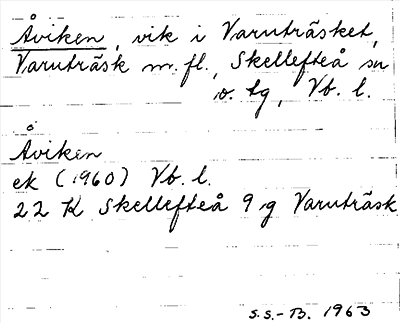 Åviken, vik i Varuträsket,
Varuträsk m.fl., Skellefteå sn
o. tg, Vb. l.
Åviken
ek (1960) Vb. l.
22 K Skellefteå 9 g Varuträsk
S.S.-B. 1963